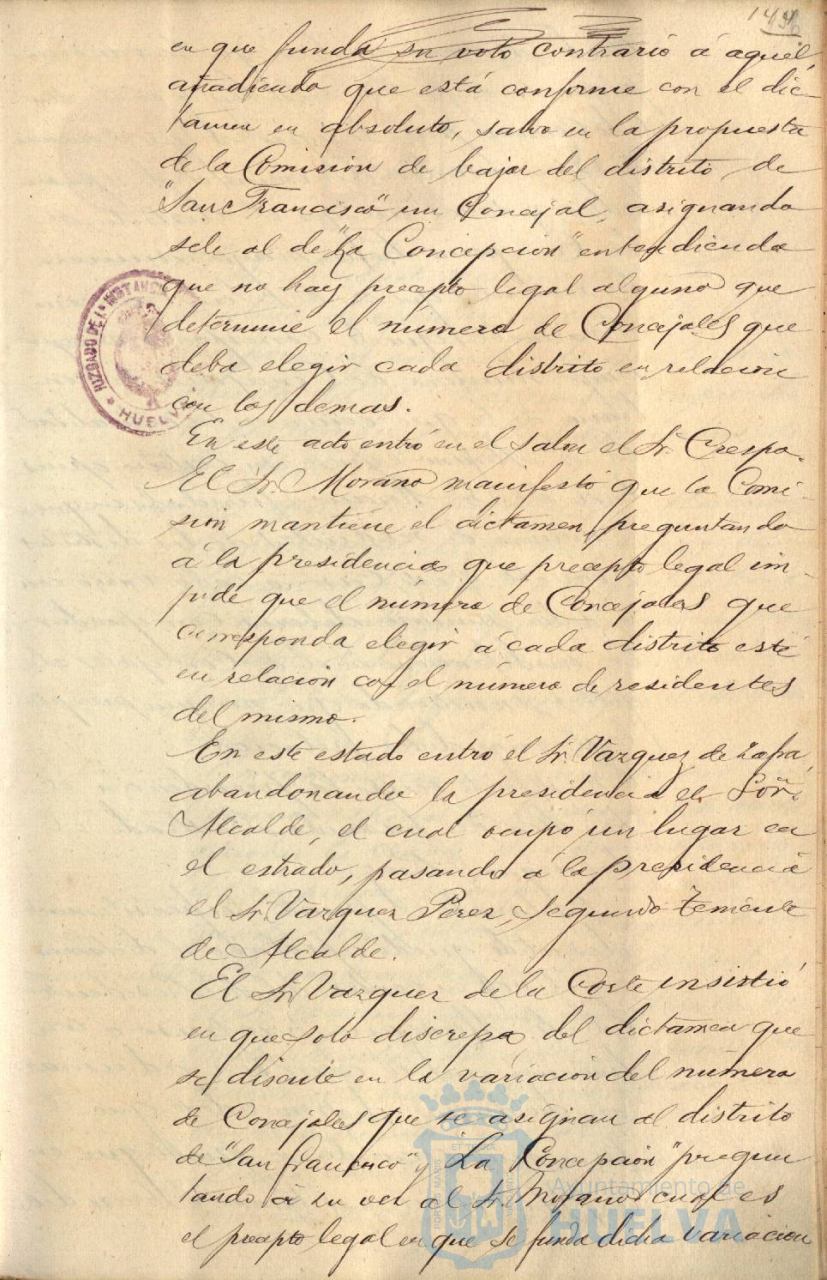 1496
en que funda su voto contrario á aquel,
añadiendo que está conforme con el dic-
tamen en absoluto, salvo en la propuesta
de la Comisión de bajar del distrito de
"San Francisco" un Concejal, asignando
sele al de "La Concepcion" entendiendo
que no hay precepto legal alguno que
determine el número de Concejales que
deba elegir cada distrito en relacion
con los demas.
En este acto entró en el salon el Sr. Crespo.
El Sr. Morano manifestó que la Comi-
sion mantiene el dictamen, preguntando
á la presidencia que precepto legal im-
pide que el número de Concejales que
corresponda elegir á cada distrito esté
en relacion con el número de residentes
del mismo.
En este estado entró el Sr. Vazquez de Zafra,
abandonando la presidencia el Señor
Alcalde, el cual ocupó un lugar en
el estrado, pasando á la presidencia
el Sr. Vazquez Perez, Segundo Teniente
de Alcalde.
El Sr. Vazquez de la Corte insistió
en que solo discrepa del dictamen que
se discute en la variacion del número
de Concejales que se asignan al distrito
de "San Francisco" y "La Concepcion" pregun
tando á su vez al Sr. Morano cual es
el precepto legal en que se funda dicha variacion
JUZGADO DE 1ª INSTANCIA
HUELVA
Ayuntamiento de
HUELVA